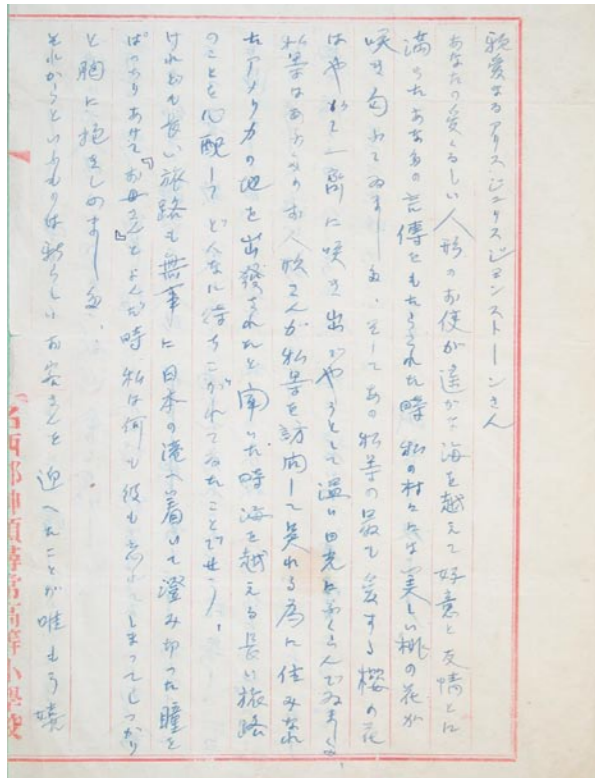 親愛なるアリス・ジョンストーンさん
あなたの愛くるしい人形のお使が遥かな海を越えて好意と友情とに
満ちたあなたの言傳をもたらされた時私の村々には美しい桃の花が
咲き匂ふてゐました、そしてあの私等の最も愛する櫻の花
はやがて一齊に咲き出でやうとして温い日光にふくらんでゐました、
私等はあなたのお人形さんが私等を訪問して呉れる為に住みなれ
たアメリカの地を出發されたと聞いた時海を越える長い旅路
のことを心配してどんなに待ちこがれてゐたことでせう、
けれども長い旅路も無事に日本の港へ着いて澄み切った瞳を
ぱっちりあけて『お母さん』とよんだ時私は何も彼も忘れてしまってしっかり
と胸に抱きしめました、
それからといふものは新らしいお客さんを迎へたことが唯もう嬉
名西郡神領尋常高等小學校